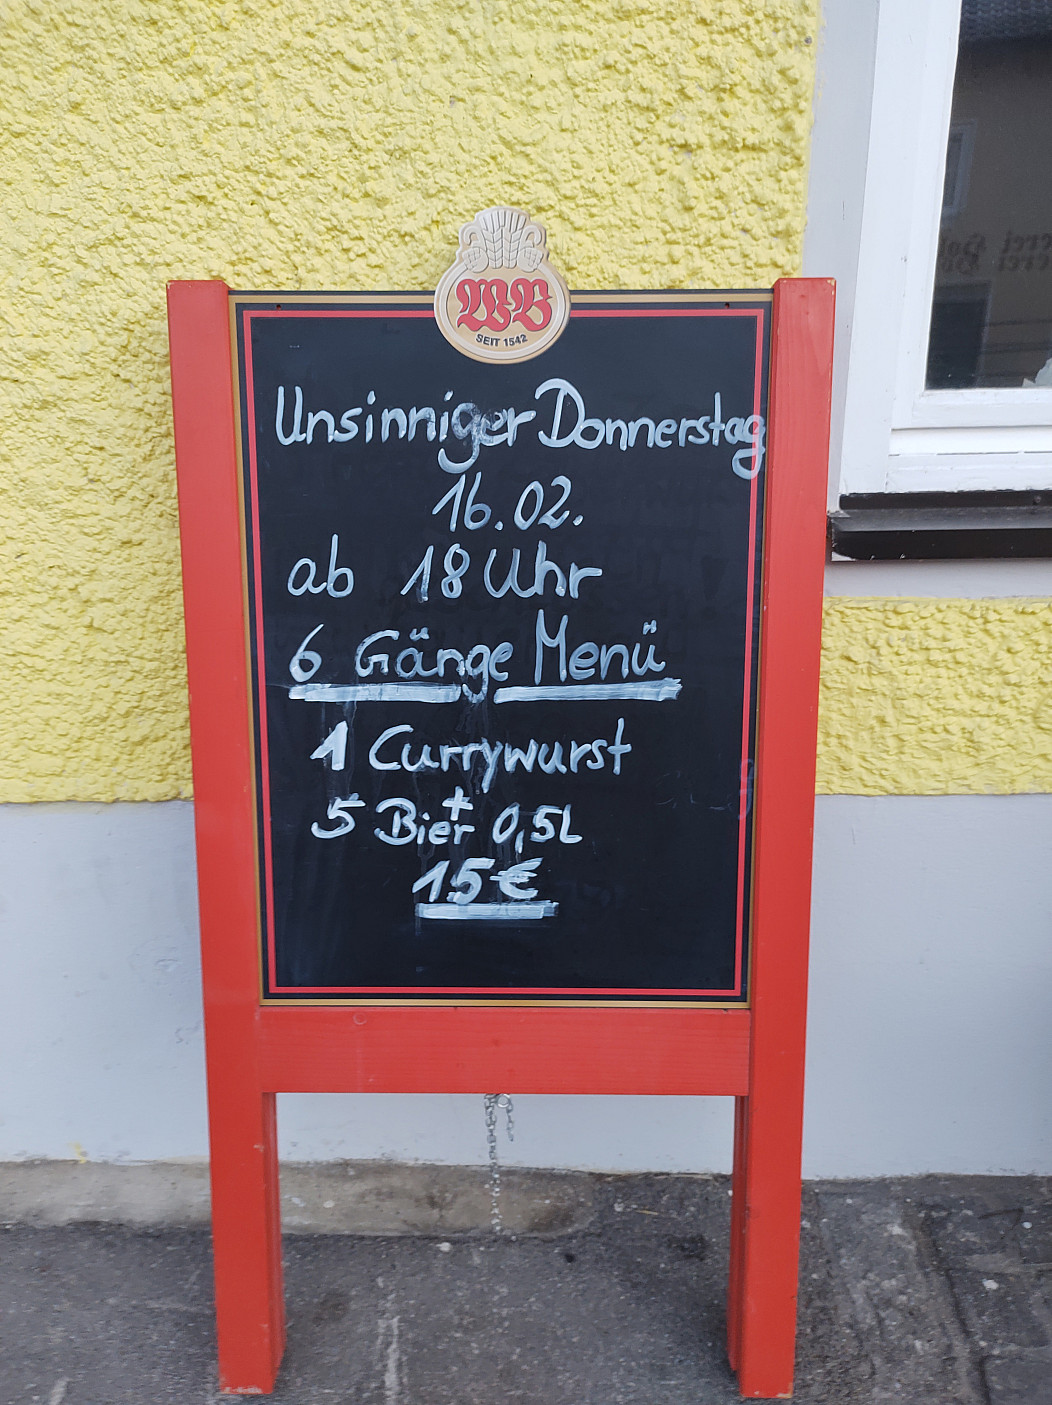 WB
SEIT 1542
Unsinniger Donnerstag
16.02.
ab 18 Uhr
6 Gänge Menü
1 Currywurst
+
5 Bier 0,5L
15€